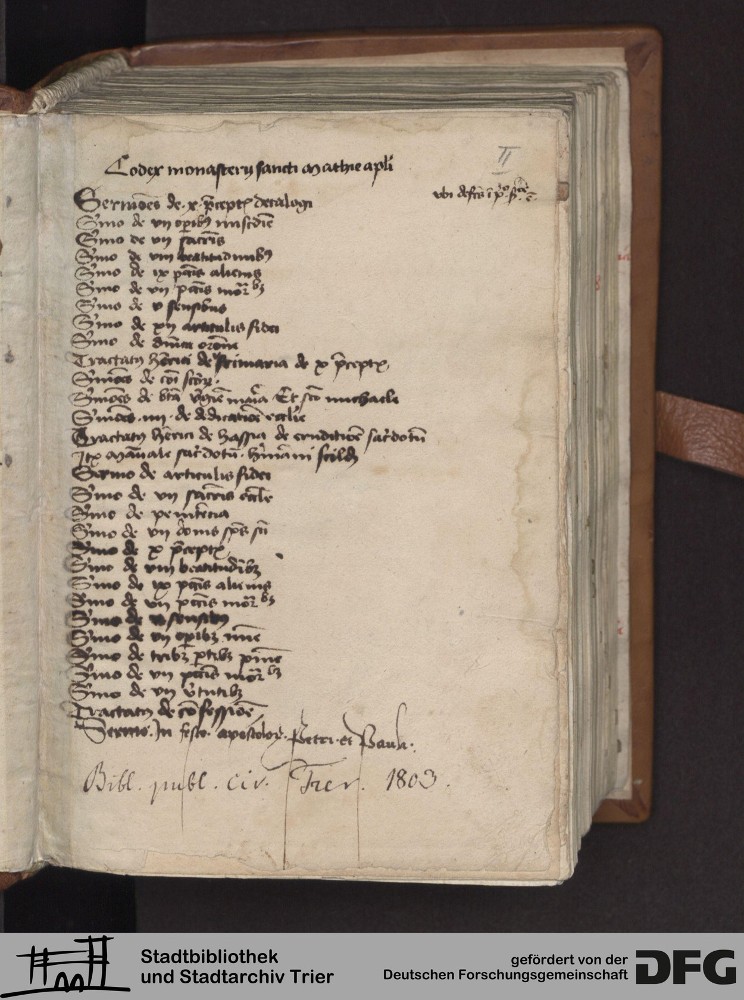 II
Codex monasterij sancti Mathie apli
Sermōes de x p̄ceptꝭ decalogi
Smo de vij opībꝫ misc̄die
Smo de vij sacr̄is
Smo de viij beatitudinibꝫ
Smo de ix pctīs alienis
Smo de vij pctīs mōr bꝫ
Smo de v sensibus
Smo de xij articulis fidei
Smo de dnīca orōne
Tractatꝰ hēnrici de frimaria de x p̄ceptꝭ
Smōes de cōi sctōꝝ
Smōes de btā v̄gīe maīa Et scō michaele
Smōes iiij de dedicatiōe ecclīe
Tractatꝰ hēnrici de hassia de eruditiōe sacdotū
Itē Mānuale sacdotū hmānni scild
Sermo de articulis fidei
Smo de vij sacr̄is eccīe
Smo de penitēcia
Smo de vij donis spūs sti
Smo de x p̄ceptꝭ
Smo de viij beatitudībꝫ
Smo de ix pctīs alienis
Smo de vij pctīs mōr bꝫ
Smo de v sensibꝫ
Smo de vij opībꝫ mīe
Smo de tribꝫ ptībꝫ pnīe
Smo de vij pctīs mōr bꝫ
Smo de vij v̄tutibꝫ
Tractatꝰ de cōfessiōe
Sermo In festo apostoloꝝ Petri et Pauli
Bibl. publ. civ. Trer. 1803.
Stadtbibliothek
und Stadtarchiv Trier
gefördert von der
Deutschen Forschungsgemeinschaft
DFG